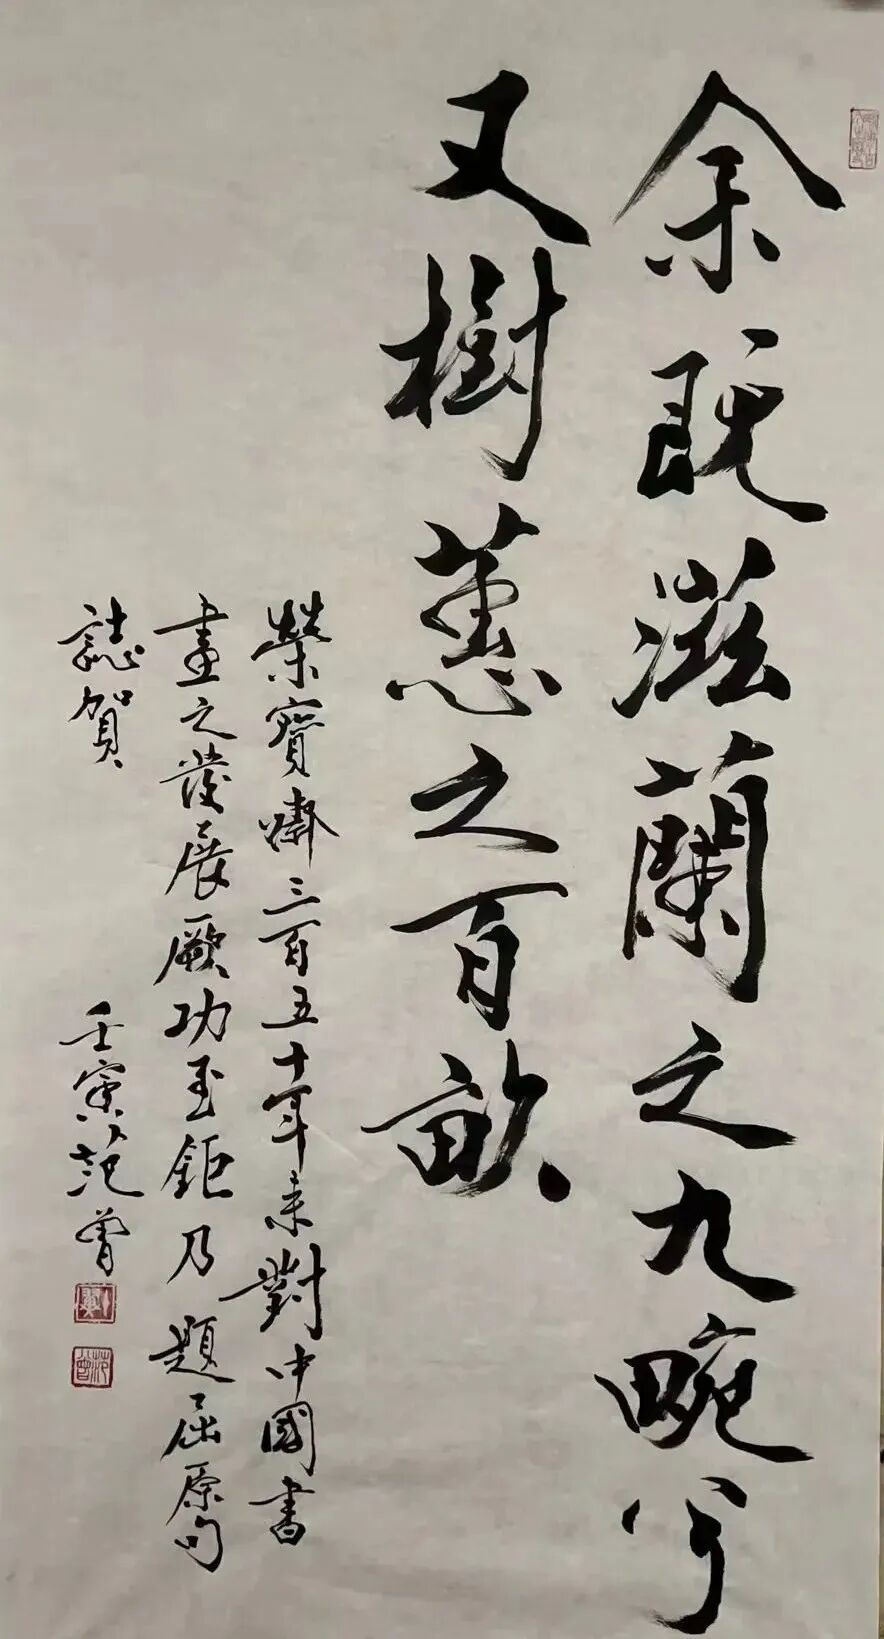 余既滋蘭之九畹兮
又樹蕙之百畝
榮寶齋三百五十年来對中國書
畫之發展厥功至鉅乃題屈原句
誌賀
壬寅范曾
范曾